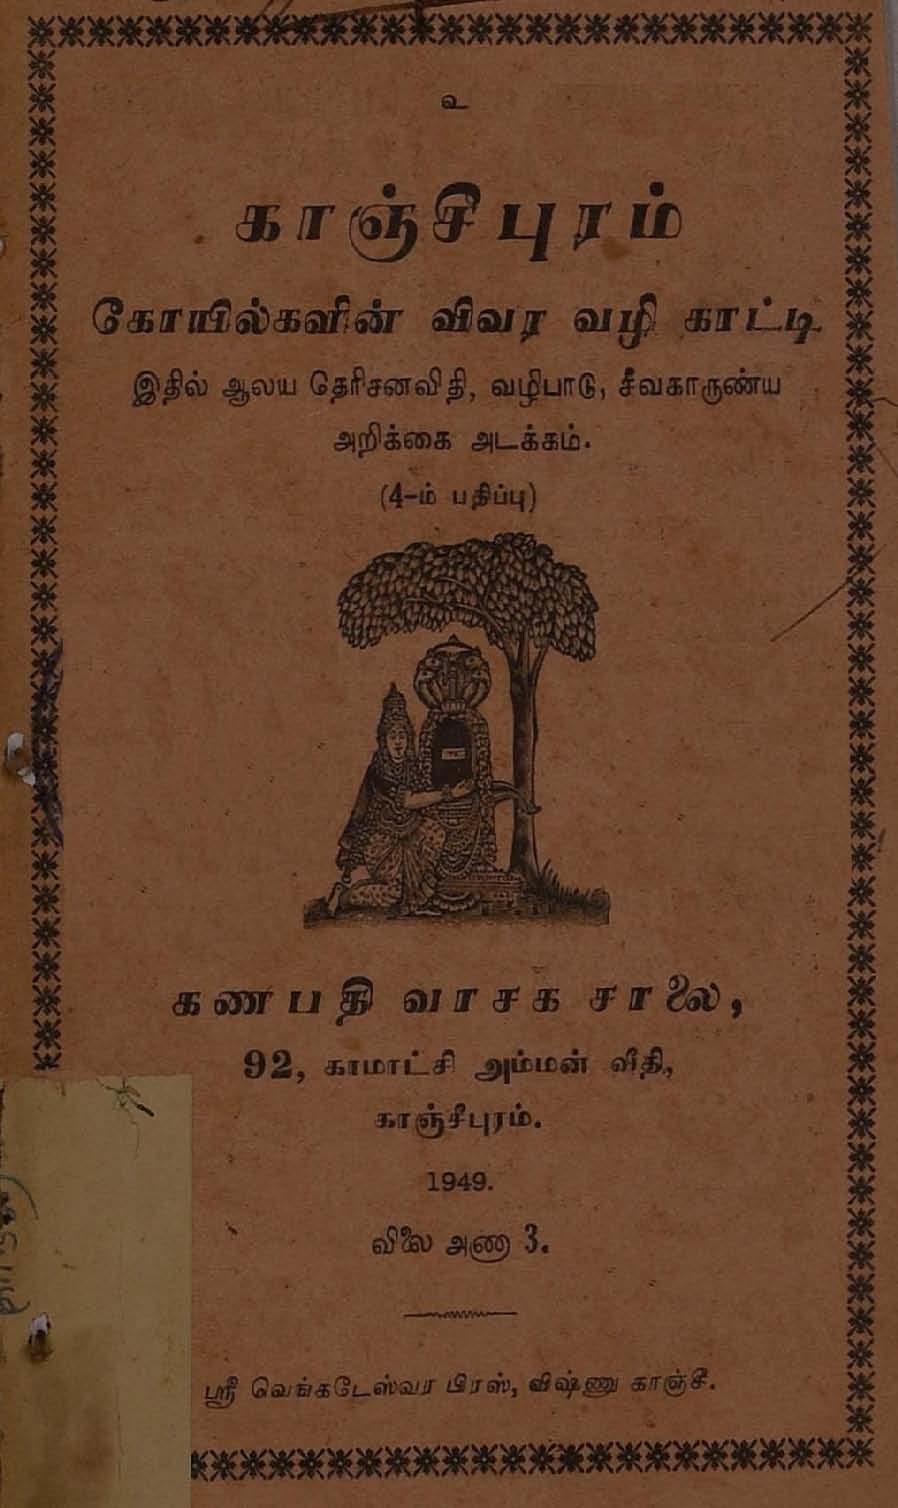 உ
காஞ்சிபுரம்
கோயில்களின் விவர வழி காட்டி
இதில் ஆலய தெரிசனவிதி, வழிபாடு, சீவகாருண்ய
அறிக்கை அடக்கம்.
(4-ம் பதிப்பு)
கணபதி வாசக சாலை,
92, காமாட்சி அம்மன் வீதி,
காஞ்சீபுரம்.
1949.
விலை அணா 3.
ஸ்ரீ வெங்கடேஸ்வர பிரஸ், விஷ்ணு காஞ்சீ.